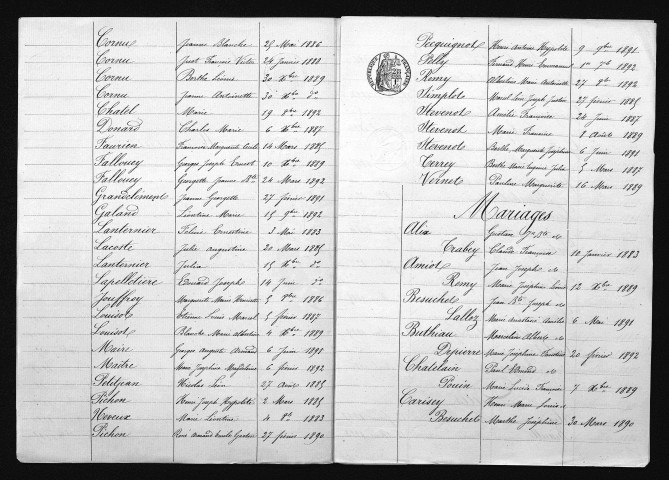 Cornu Jeanne Blanche 25 Mai 1886
Cornu Just François Victor 24 Janvier 1888
Cornu Berthe Léonie 30 Xbre 1889
Cornu Jeanne Antoinette 30 Xbre do
Chatel Marie 19 8bre 1892
Donard Charles Marie 6 Xbre 1887
Faurien Françoise Marguerite 14 Mars 1885
Fallouey Georges Joseph Ernest 10 Xbre 1889
Fallouey Georgette Jeanne 24 Mars 1892
Grandclément Jeanne Georgette 27 février 1891
Galand Léontine Marie 15 9bre 1892
Lanternier Céline Ernestine 3 Mai 1883
Lacoste Julie Augustine 20 Mars 1885
Lanternier Julia 15 Xbre do
Lapelletière Edouard Joseph 14 Juin do
Jouffroy Marguerite Marie Henriette 5 9bre 1886
Louisot Etienne Louis Marcel 5 février 1887
Louisot Blanche Marie Albertine 4 Xbre 1889
Maire Georges Auguste Armand 6 Juin 1891
Maitre Marie Joséphine Magdeleine 6 février 1892
Petitjean Nicolas Léon 27 Août 1885
Pichon Henri Joseph Hyppolite 2 Mars 1885
Neveux Marie Léontine 4 1883
Pichon René Armand Emile Gaston 27 février 1890
Pecquignot Henri Antoine Hyppolite 9 9bre 1891
Pelly Fernand Marie Emmanuel 1er 7bre 1892
Remy Albertine Marie Antoinette 27 8bre 1892
Simplot Marcel Léon Joseph Justin 27 février 1885
Stevenot Amélie Françoise 24 Juin 1887
Stevenot Marie Francine 8 Août 1889
Stevenot Berthe Marguerite Joséphine 6 Juin 1891
Terrey Berthe Marie Eugénie Julie 5 Mars 1887
Vernet Pauline Marguerite 16 Mars 1889
Mariages
Alix Gustave Jn Bte &
Trabey Claude Francine 10 Janvier 1883
Amiot Jean Joseph &
Remy Marie Joséphine 12 Xbre 1889
Besuchet Jean Bte Joseph &
Sallez Marie Anastasie Amélie 6 Mai 1891
Buthiau Albert &
Dipierre Marie Joséphine 20 février 1892
Chatelain Paul Edouard &
Pouin Marie Lucie Francoise 7 Xbre 1889
Carisey Henri Marie Louis &
Besuchet Marthe Joséphine 30 Mars 1890